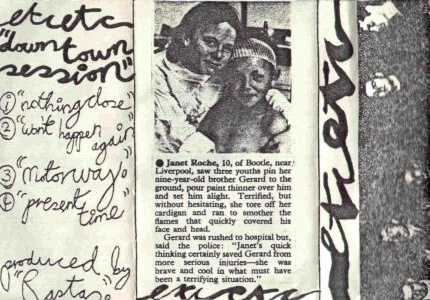 etcetc
"down town
session"
① "nothing close"
② "wont happen
again"
③ "motorway"
④ "present
time"
produced by
● Janet Roche, 10, of Bootle, near
Liverpool, saw three youths pin her
nine-year-old brother Gerard to the
ground, pour paint thinner over him
and set him alight. Terrified, but
without hesitating, she tore off her
cardigan and ran to smother the
flames that quickly covered his
face and head.
Gerard was rushed to hospital but,
said the police: "Janet's quick
thinking certainly saved Gerard from
more serious injuries—she was
brave and cool in what must have
been a terrifying situation."